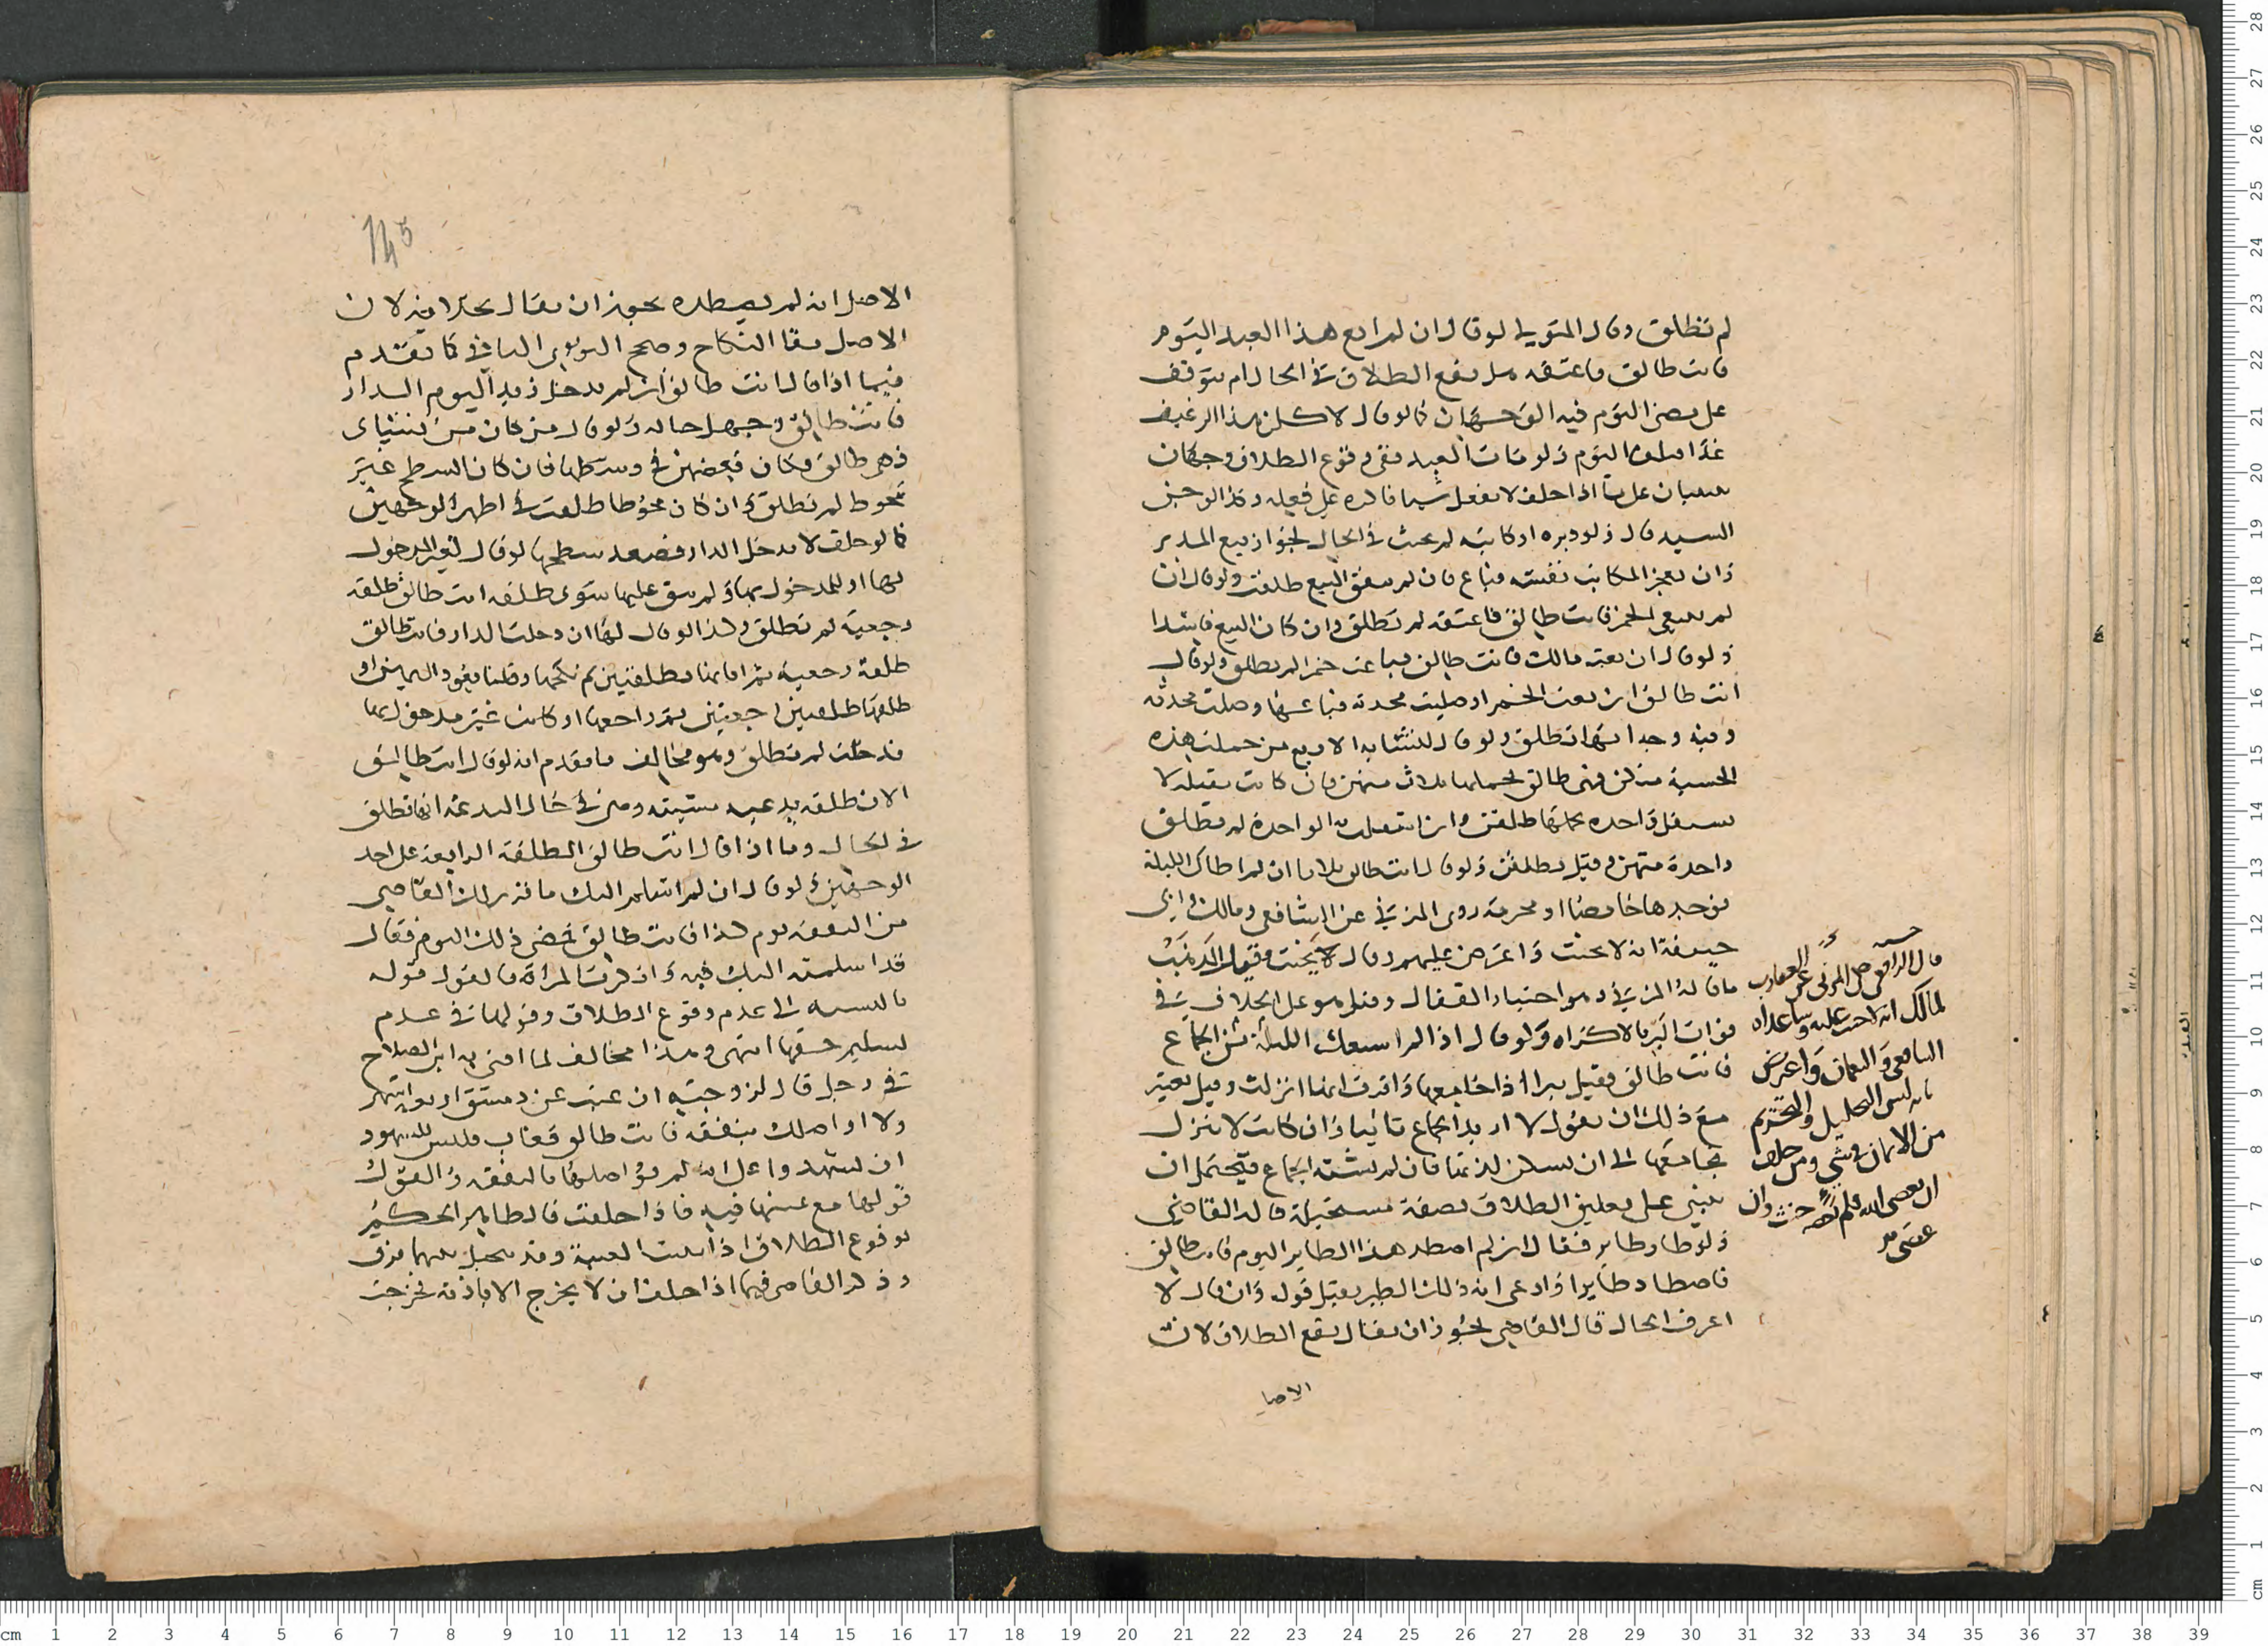 لم تطلق وقال المتولي لو قال ان لم ابع هذا العبد اليوم
فانت طالق فاعتقه هل يقع الطلاق في الحال ام يتوقف
على مضى اليوم فيه الوجهان كما لو قال لاكلن هذا الرغيف
غدا اليوم ولو مات العبد ففي وقوع الطلاق وجهان
على ما اذا حلف لا يفعل شيا فاكره على فعله وكذا لو جن
السيد قال ولو دبره او كاتبه لم يحنث في الحال لجواز بيع المدبر
وان يعجز المكاتب نفسه فيباع فان لم يتفق البيع طلقت ولو قال ان
لم فانت طالق فاعتقه لم تطلق وان كان البيع فاسدا
ولو قال ان بعت مالك فانت طالق فباعت خمرا لم تطلق ولو قال
انت طالق ان بعت الخمر او صليت محدثه فباعتها وصلت محدثه
وفيه وجه انها تطلق ولو قال لنسائه الاربع من حملت هذه
الخشبة منكن فهي طالق فحملها ثلاث منهن فان كانت ثقيله لا
تستقل واحده بحملها طلقن وان استقلت الواحدة لم تطلق
واحدة منهن وقيل يطلقن ولو قال انت طالق ثلاثا ان لم اطاك الليلة
فوجدها حائضا او محرمة روى المزني عن الشافعي ومالك وابي
حنيفة انه لا يحنث واعترض عليهم وقال يحنث وقيل المذهب
ما قاله المزني وهو اختيار القفال وقيل هو على الخلاف في
فوات البر بالاكراه ولو قال اذا لم اسبعك الليلة من الجماع
فانت طالق فقيل يبرا اذا جامعها واقرت انها انزلت وقيل يعتبر
مع ذلك ان تقول لا اريد الجماع ثانيا وان كانت لا تنزل
فيجامعها الى ان تسكن لذتها فان لم تشته الجماع فيحتمل ان
يبنى على تعليق الطلاق بصفة مستحيلة قاله القاضي
ولو طار طاير فقال ان لم اصطد هذا الطاير اليوم فانت طالق
فاصطاد طايرا وادعى انه ذلك الطير يقبل قوله وان قال لا
اعرف الحال قال القاضي يجوز ان يقال يقع الطلاق لان
الاصل
قال الرافعي المزني عن
لمالك انه لا حنث عليه وساعداه
الشافعي والنعمان واعترض
بانه ليس التحليل والتحريم
من الايمان في شي ومن حلف
ان يعصى الله فلم يعصه حنث وان
عصى بر
145
الاصل انه لم يصطده يجوز ان يقال لان
الاصل بقا النكاح وصحح النووي الثاني كما تقدم
فيما اذا قال انت طالق ان لم يدخل زيد اليوم الدار
وجهل حاله ولو قال من كان من نسائي
فهي طالق وكان بعضهن في وسطها فان كان السطح غير
محوط لم تطلق وان كان محوطا طلقت في اظهر الوجهين
كما لو حلف لا يدخل الدار فصعد سطحها لو قال لغير المدخول
بها او للمدخول بها ولم يبق عليها سوى طلقه انت طالق طلقه
رجعيه لم تطلق وكذا لو قال لها ان دخلت الدار فانت طالق
طلقة رجعيه ثم ابانها بطلقتين ثم نكحها وقلنا بعود اليمين او
طلقها طلقتين رجعيتين ثم راجعها او كانت غير مدخول بها
فدخلت لم تطلق وهو مخالف ما تقدم انه لو قال انت طالق
الان طلقه بدعيه سنيه وهي في حال البدعة انها تطلق
في الحال وما اذا قال انت طالق الطلقة الرابعة على احد
الوجهين ولو قال ان لم اسلم اليك ما قدر لك القاضي
من النفقه يوم كذا فانت طالق فمضى ذلك اليوم فقال
قد اسلمته اليك فيه وانكرت المراة فالقول قوله
بالنسبه الى عدم وقوع الطلاق وقولها في عدم
تسليم حقها انتهى وهذا مخالف لما افتى به ابن الصلاح
في رجل قال لزوجته ان غبت عن دمشق اربعة اشهر
ولا اواصلك بنفقه فانت طالق فغاب فليس للشهود
ان يشهدوا على انه لم يواصلها بالنفقه والقول
قولها مع يمينها فيه فاذا حلفت فالظاهر الحكم
بوقوع الطلاق اذا ثبتت الغيبة وقد يحصل بينهما فرق
وذكر القاضي فيما اذا حلف ان لا يخرج الا باذنه فخرجت